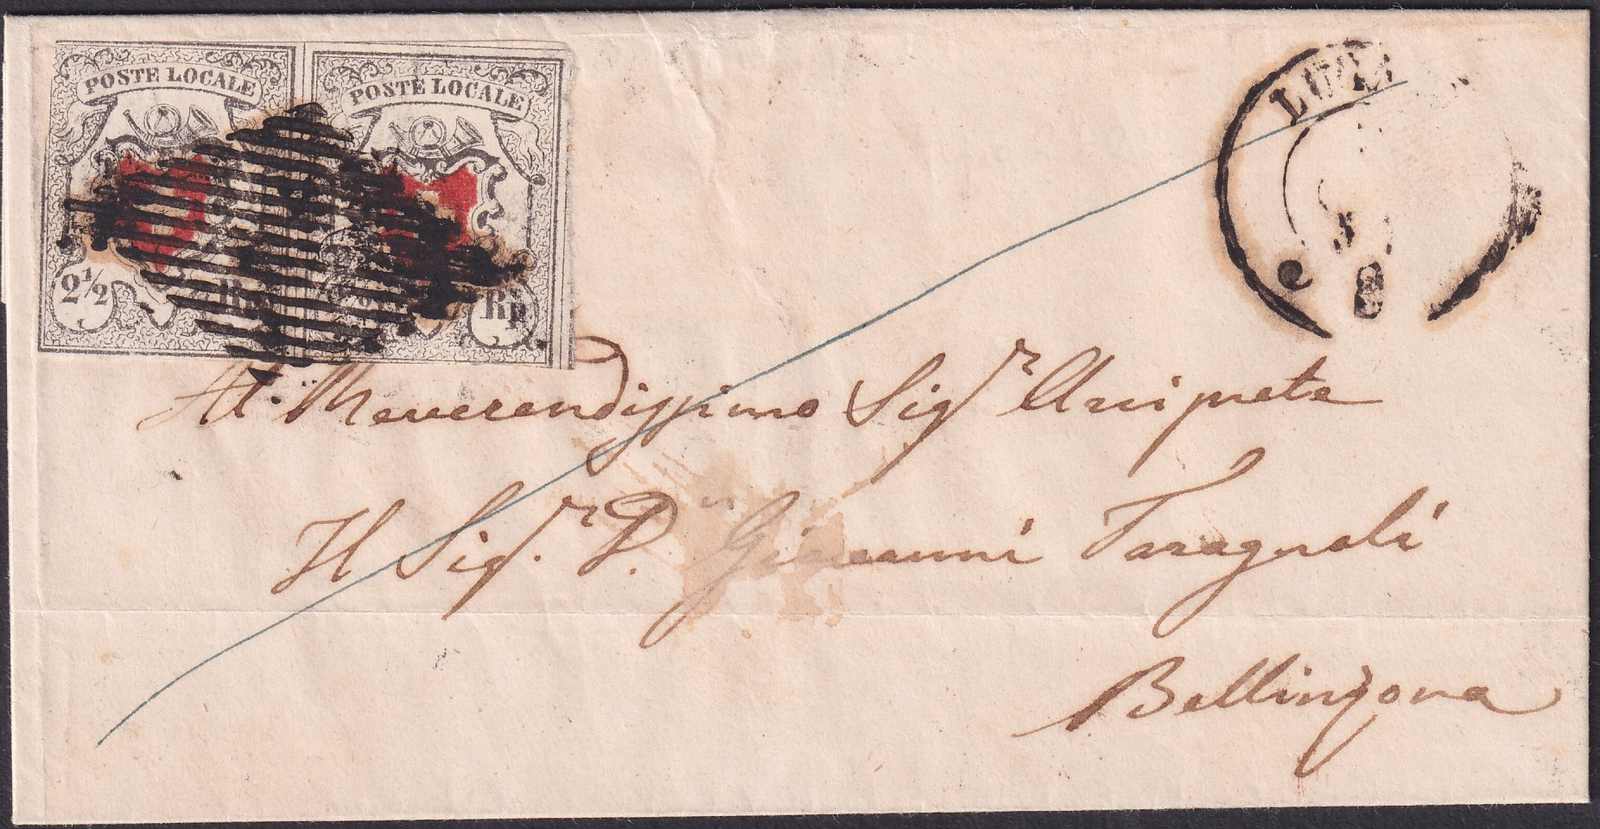 POSTE LOCALE
POSTE LOCALE
2½
Rp
Al Reverendissimo Sigr Arciprete
Il Sigr. D.n Giovanni
Bellinzona